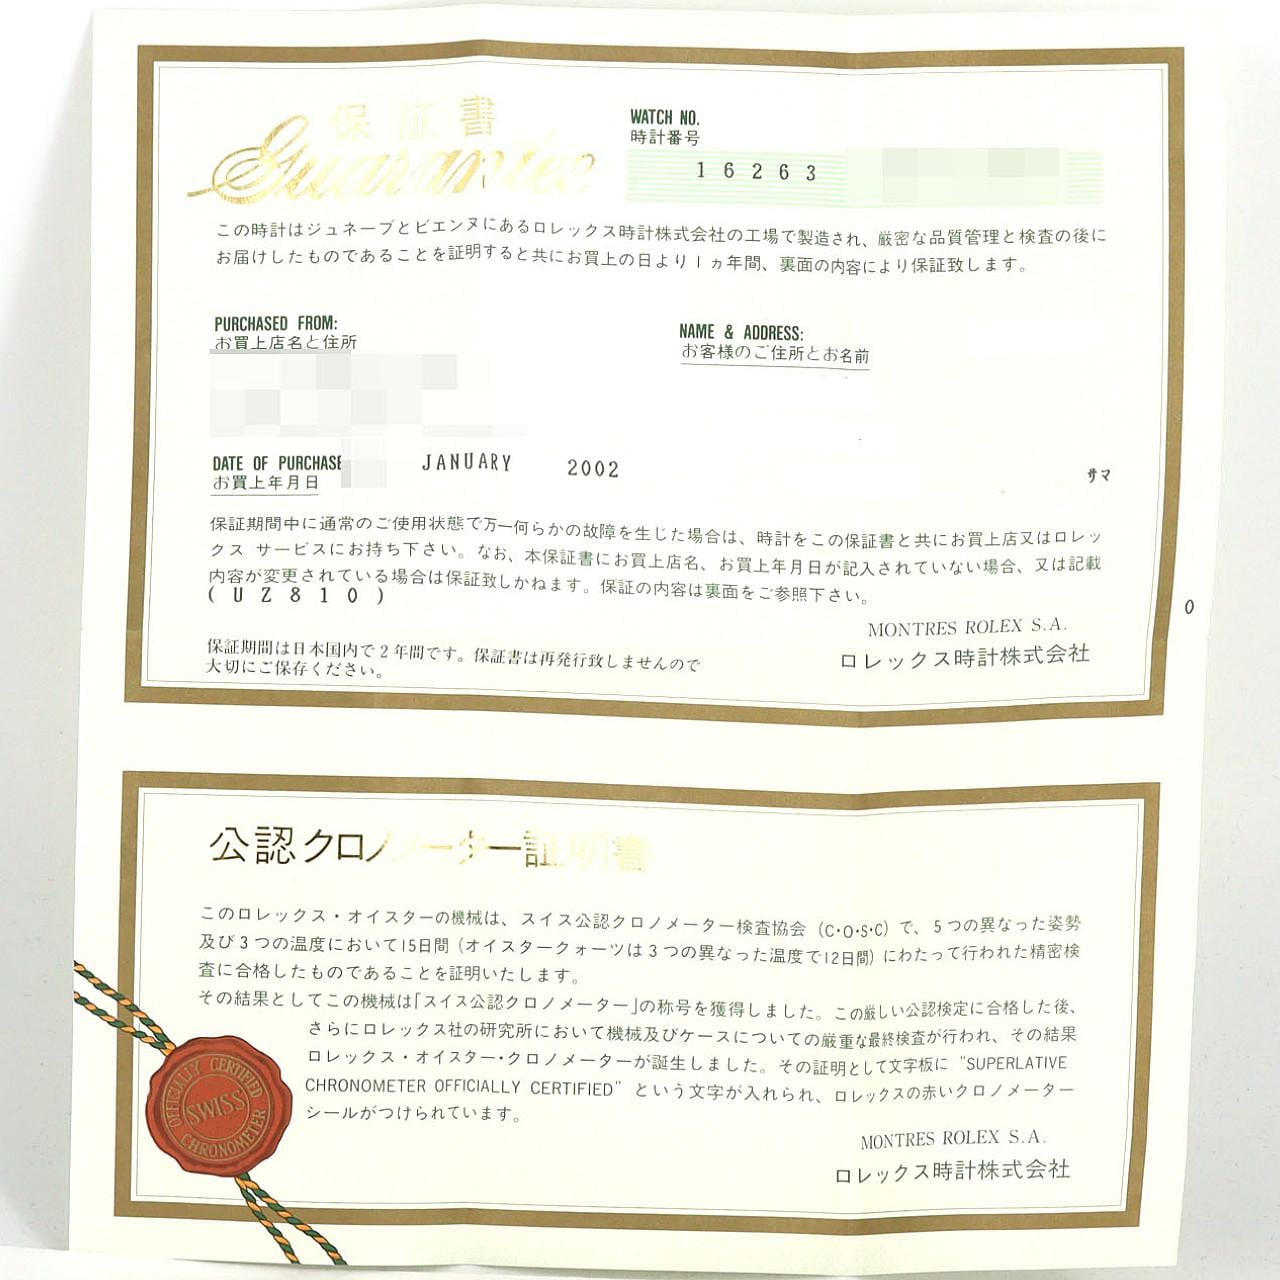 保証書
Guarantee
WATCH NO.
時計番号
16263
この時計はジュネーブとビエンヌにあるロレックス時計株式会社の工場で製造され、厳密な品質管理と検査の後に
お届けしたものであることを証明すると共にお買上の日より1ヵ年間、裏面の内容により保証致します。
PURCHASED FROM:
お買上店名と住所
NAME & ADDRESS:
お客様のご住所とお名前
DATE OF PURCHASE
お買上年月日
JANUARY 2002
サマ
保証期間中に通常のご使用状態で万一何らかの故障を生じた場合は、時計をこの保証書と共にお買上店又はロレッ
クス サービスにお持ち下さい。なお、本保証書にお買上店名、お買上年月日が記入されていない場合、又は記載
内容が変更されている場合は保証致しかねます。保証の内容は裏面をご参照下さい。
(UZ810)
0
MONTRES ROLEX S.A.
ロレックス時計株式会社
保証期間は日本国内で2年間です。保証書は再発行致しませんので
大切にご保存ください。
公認クロノメーター証明書
このロレックス・オイスターの機械は、スイス公認クロノメーター検査協会(C・O・S・C)で、5つの異なった姿勢
及び3つの温度において15日間(オイスタークォーツは3つの異なった温度で12日間)にわたって行われた精密検
査に合格したものであることを証明いたします。
その結果としてこの機械は「スイス公認クロノメーター」の称号を獲得しました。この厳しい公認検定に合格した後、
さらにロレックス社の研究所において機械及びケースについての厳重な最終検査が行われ、その結果
ロレックス・オイスター・クロノメーターが誕生しました。その証明として文字板に "SUPERLATIVE
CHRONOMETER OFFICIALLY CERTIFIED" という文字が入れられ、ロレックスの赤いクロノメーター
シールがつけられています。
OFFICIALLY CERTIFIED
SWISS
CHRONOMETER
MONTRES ROLEX S.A.
ロレックス時計株式会社